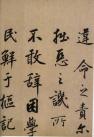 違命之責爾
拙惡之譏所
不敢辭困學
民鮮于樞記